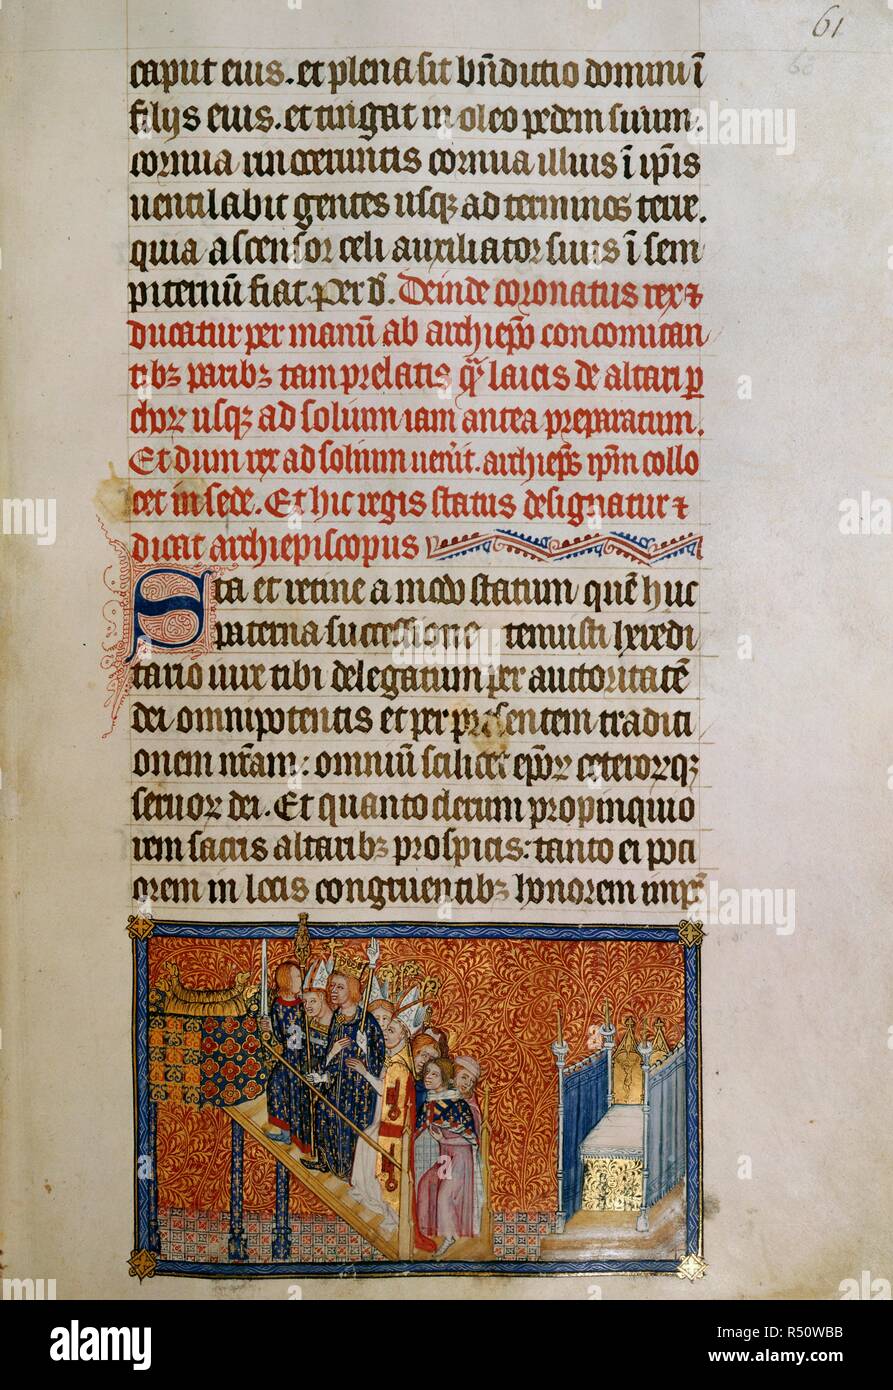 61
caput eius. et plena sit bn̄dictio domini ī
filijs eius. et tingat in oleo pedem suum.
cornua rinoceruntis cornua illius ī ip̄is
uentilabit gentes usqꝫ ad terminos terre.
quia ascensor celi auxiliator suus ī sem
piternū fiat. per d̄. Deinde coronatus rex ⁊
ducatur per manū ab archiep̄o concomitan
tibꝫ paribꝫ tam prelatis qͣ laicis de altari ꝑ
choꝝ usqꝫ ad solium iam antea preparatum.
Et dum rex ad solium uen̄it. archiep̄s ip̄m collo
cet in sede. Et hic regis status designatur ⁊
dicat archiepiscopus
Sta et retine amodo statum quē huc
paterna successione tenuisti heredi
tario iure tibi delegatum per auctoritatē
dei omnipotentis et per presentem traditi
onem nr̄am: omniū scilicet ep̄oꝝ ceteroꝝqꝫ
seruoꝝ dei. Et quanto clerum propinquio
rem sacris altaribꝫ prospicis: tanto ei poci
orem in locis congruentibꝫ honorem imp̄
alamy
a
alamy stock photo
Image ID: R50WBB
www.alamy.com